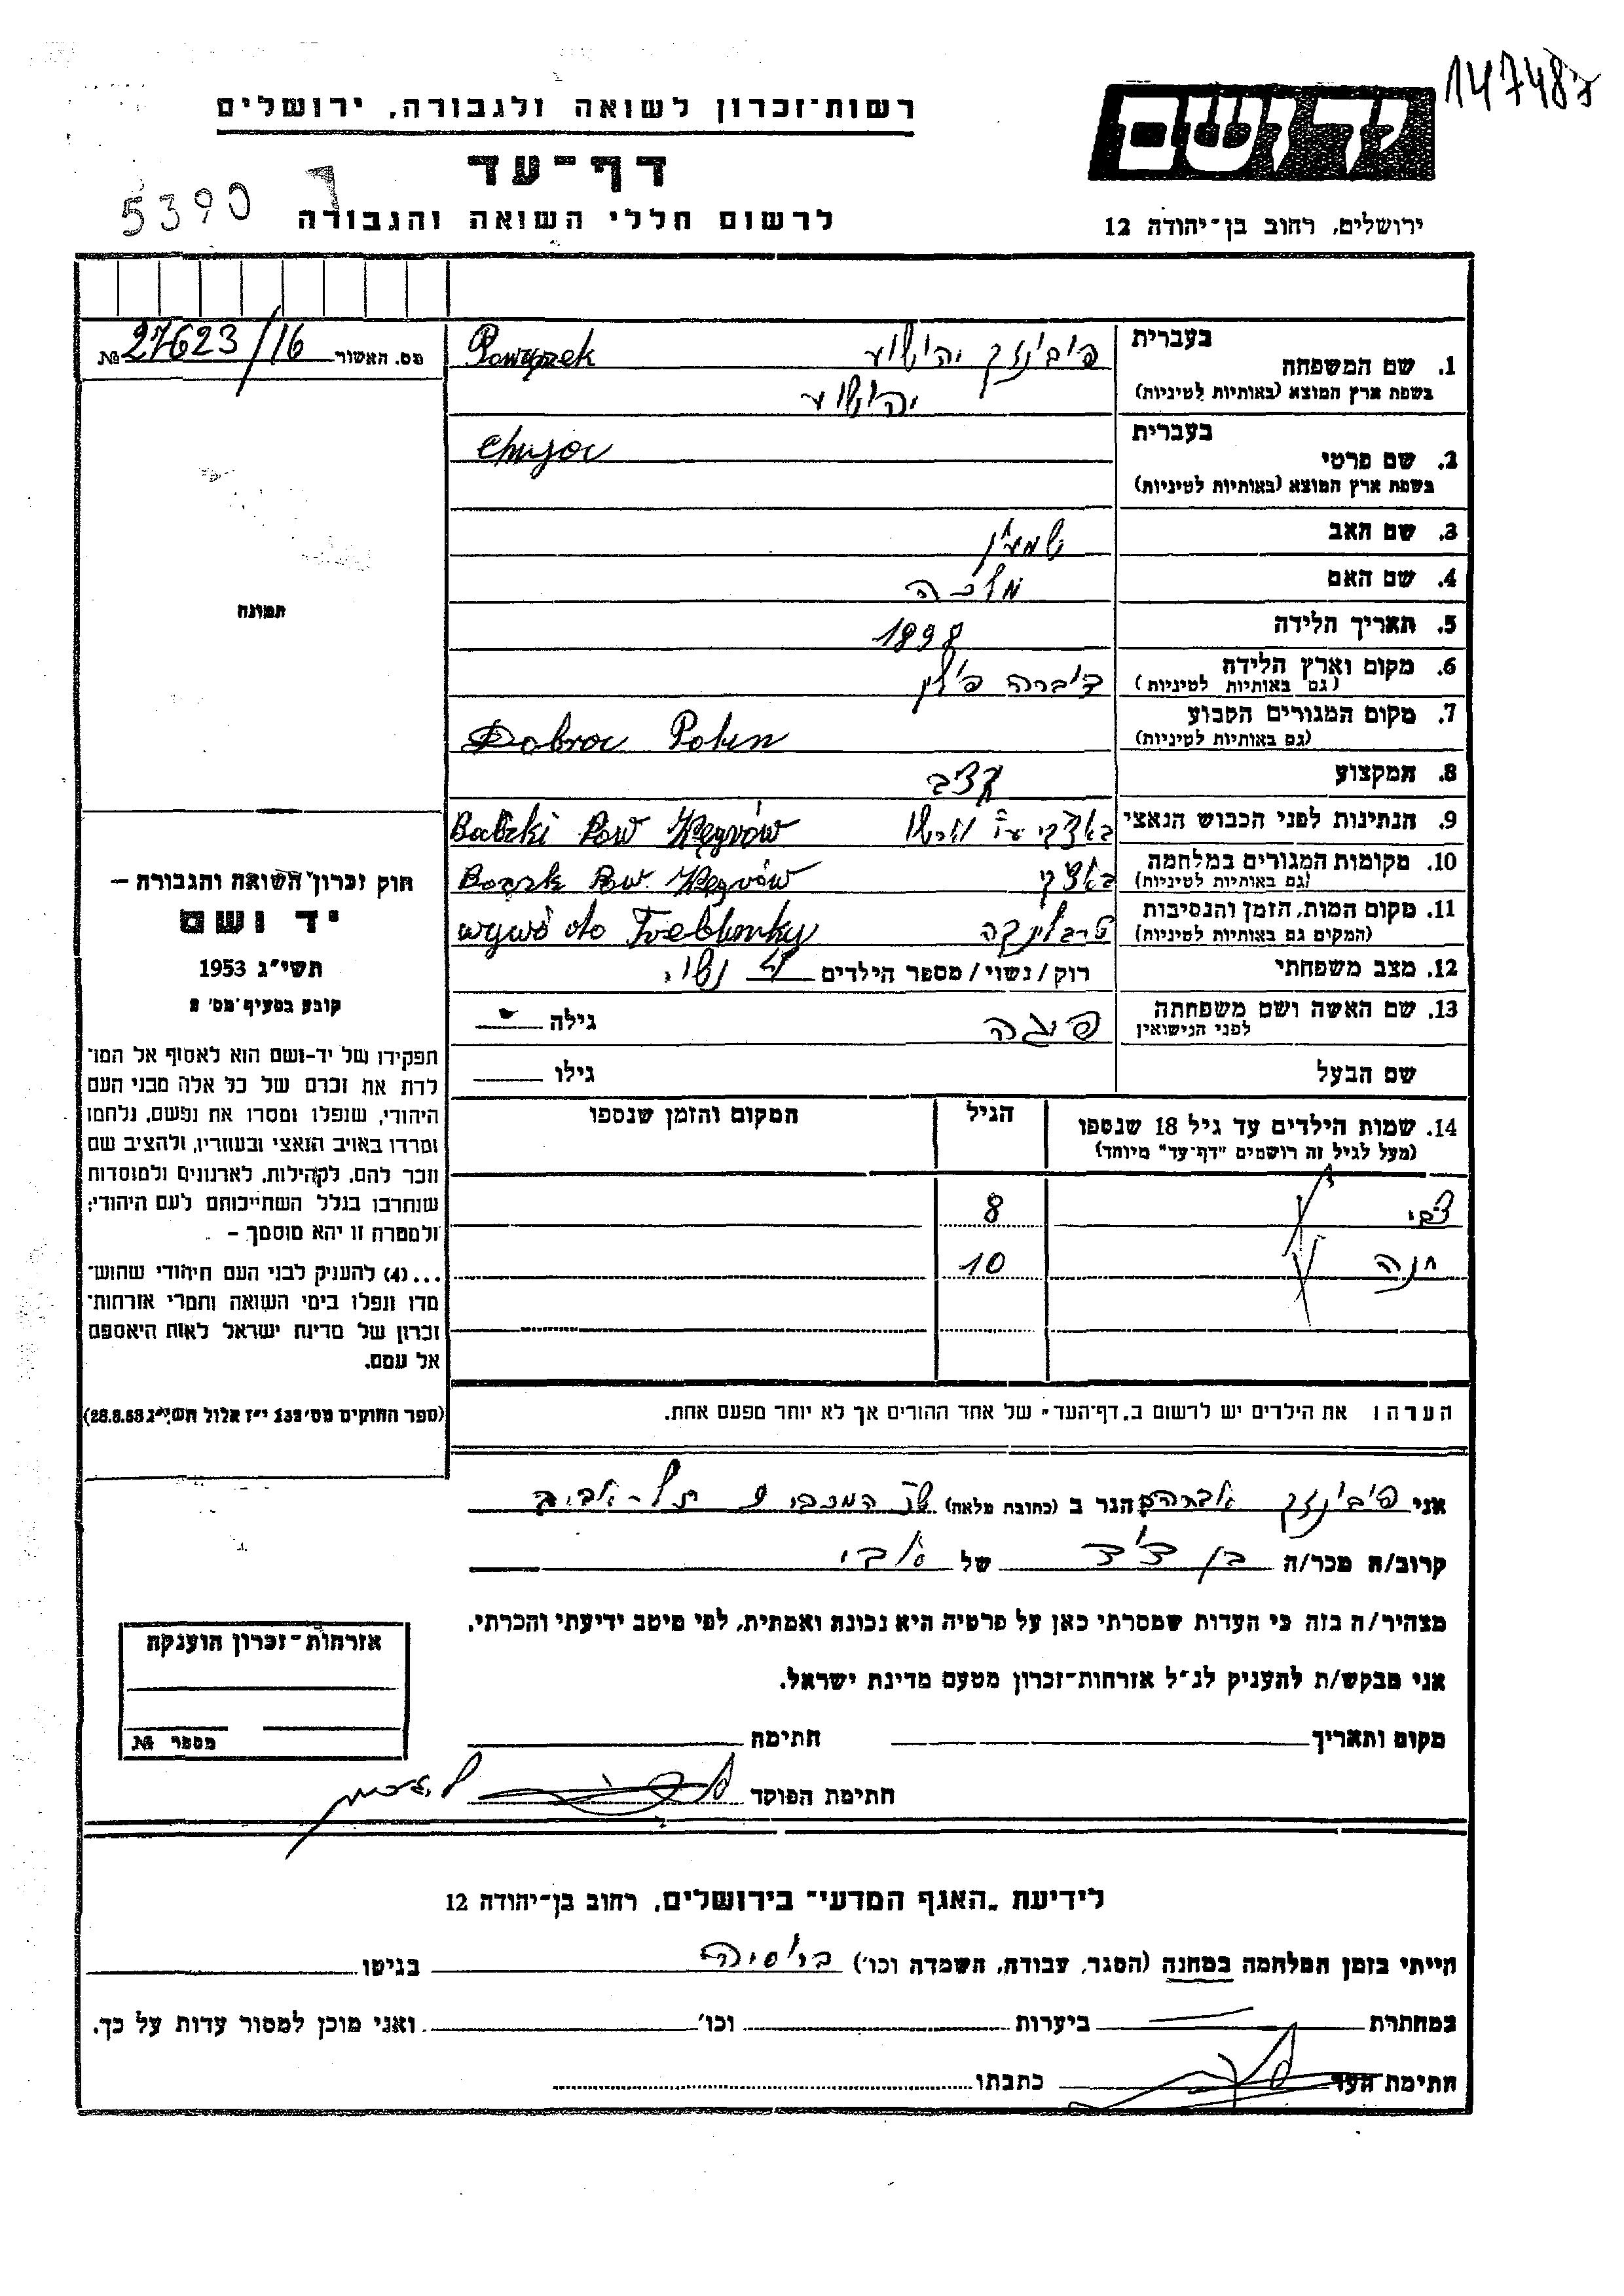 147483
ידושם
רשות־זכרון לשואה ולגבורה, ירושלים
דף־עד
לרשום חללי השואה והגבורה
5390
ירושלים, רחוב בן־יהודה 12
מס. האשור № 27623/16
בעברית
1. שם המשפחה
בשפת ארץ המוצא (באותיות לטיניות)
יהושע
יהושע
בעברית
2. שם פרטי
בשפת ארץ המוצא (באותיות לטיניות)
3. שם האב שמעון
4. שם האם מלכה
5. תאריך הלידה 1898
6. מקום וארץ הלידה
(גם באותיות לטיניות)
פולין
7. מקום המגורים הקבוע
(גם באותיות לטיניות)
8. המקצוע קצב
9. הנתינות לפני הכבוש הנאצי
10. מקומות המגורים במלחמה
(גם באותיות לטיניות)
11. מקום המות, הזמן והנסיבות
(המקום גם באותיות לטיניות)
טרבלינקה
12. מצב משפחתי רוק/נשוי/מספר הילדים נשוי
13. שם האשה ושם משפחתה
לפני הנישואין
גילה
שם הבעל גילו
14. שמות הילדים עד גיל 18 שנספו
(מעל לגיל זה רושמים "דף־עד" מיוחד)
הגיל
המקום והזמן שנספו
צבי 8
חנה 10
הערה: את הילדים יש לרשום ב„דף־העד" של אחד ההורים אך לא יותר מפעם אחת.
תמונה
חוק זכרון השואה והגבורה –
יד ושם
תשי"ג 1953
קובע בסעיף מס' 2
תפקידו של יד-ושם הוא לאסוף אל המו־
לדת את זכרם של כל אלה מבני העם
היהודי, שנפלו ומסרו את נפשם, נלחמו
ומרדו באויב הנאצי ובעוזריו, ולהציב שם
וזכר להם, לקהילות, לארגונים ולמוסדות
שנחרבו בגלל השתייכותם לעם היהודי;
ולמטרה זו יהא מוסמך –
...(4) להעניק לבני העם היהודי שהוש־
מדו ונפלו בימי השואה והמרי אזרחות־
זכרון של מדינת ישראל לאות היאספם
אל עמם.
(ספר החוקים מס' 132 י"ז אלול תשי"ג 28.8.53)
אני אברהם הגר ב (כתובת מלאה) תל-אביב
קרוב/ה מכר/ה בן דוד של
מצהיר/ה בזה כי העדות שמסרתי כאן על פרטיה היא נכונה ואמתית, לפי מיטב ידיעתי והכרתי.
אני מבקש/ת להעניק לנ"ל אזרחות־זכרון מטעם מדינת ישראל.
מקום ותאריך חתימה
חתימת הפוקד
אזרחות־זכרון הוענקה
מספר №
לידיעת „האגף המדעי" בירושלים, רחוב בן־יהודה 12
הייתי בזמן המלחמה במחנה (הסגר, עבודה, השמדה וכו') ברוסיה בגיטו
במחתרת ביערות וכו' ואני מוכן למסור עדות על כך.
חתימת העד כתבתו